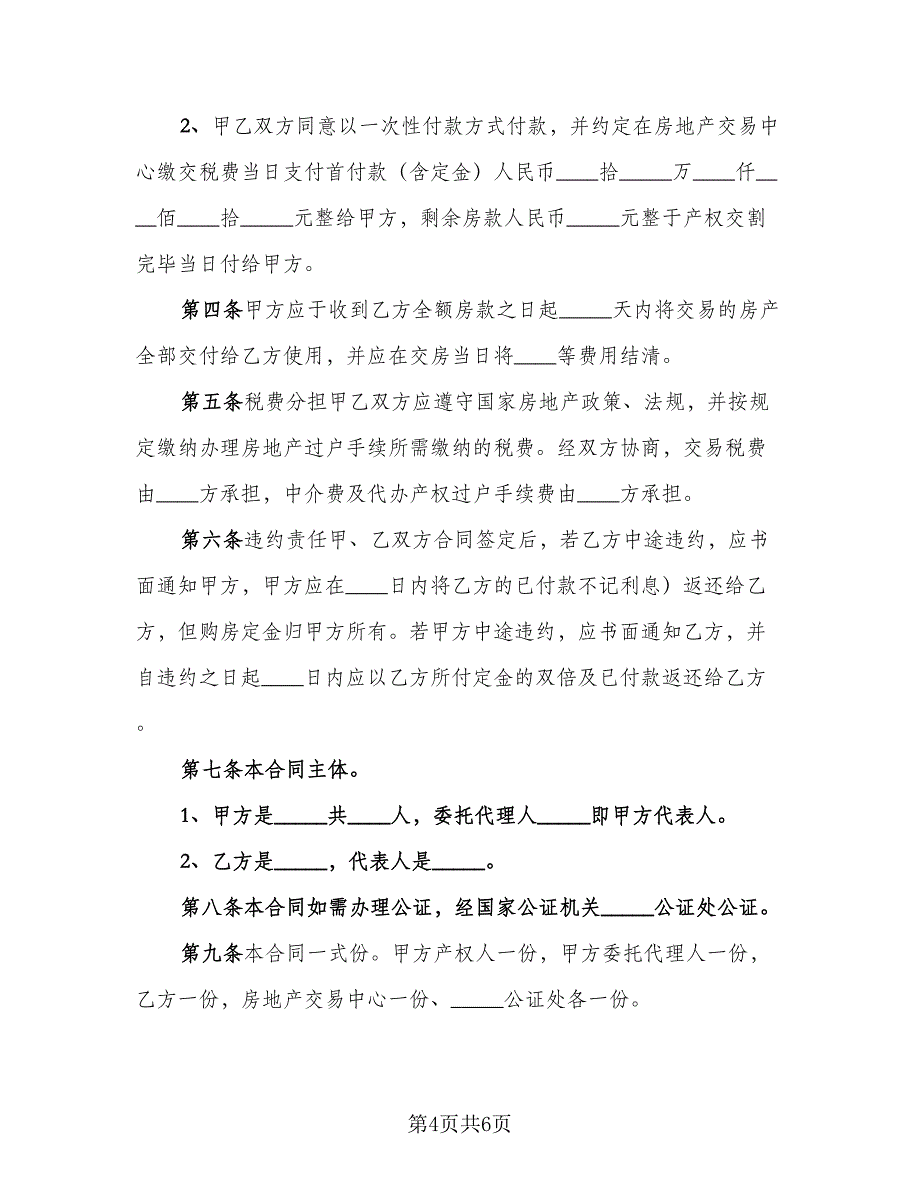 2、甲乙双方同意以一次性付款方式付款，并约定在房地产交易中
心缴交税费当日支付首付款（含定金）人民币____拾_____万____仟__
__佰____拾_____元整给甲方，剩余房款人民币_____元整于产权交割
完毕当日付给甲方。
第四条甲方应于收到乙方全额房款之日起_____天内将交易的房产
全部交付给乙方使用，并应在交房当日将____等费用结清。
第五条税费分担甲乙双方应遵守国家房地产政策、法规，并按规
定缴纳办理房地产过户手续所需缴纳的税费。经双方协商，交易税费
由____方承担，中介费及代办产权过户手续费由____方承担。
第六条违约责任甲、乙双方合同签定后，若乙方中途违约，应书
面通知甲方，甲方应在____日内将乙方的已付款不记利息）返还给乙
方，但购房定金归甲方所有。若甲方中途违约，应书面通知乙方，并
自违约之日起____日内应以乙方所付定金的双倍及已付款返还给乙方
。
第七条本合同主体。
1、甲方是_____共____人，委托代理人_____即甲方代表人。
2、乙方是_____，代表人是_____。
第八条本合同如需办理公证，经国家公证机关_____公证处公证。
第九条本合同一式份。甲方产权人一份，甲方委托代理人一份，
乙方一份，房地产交易中心一份、_____公证处各一份。
第4页共6页